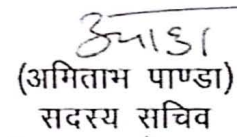 (अमिताभ पाण्डा)
सदस्य सचिव